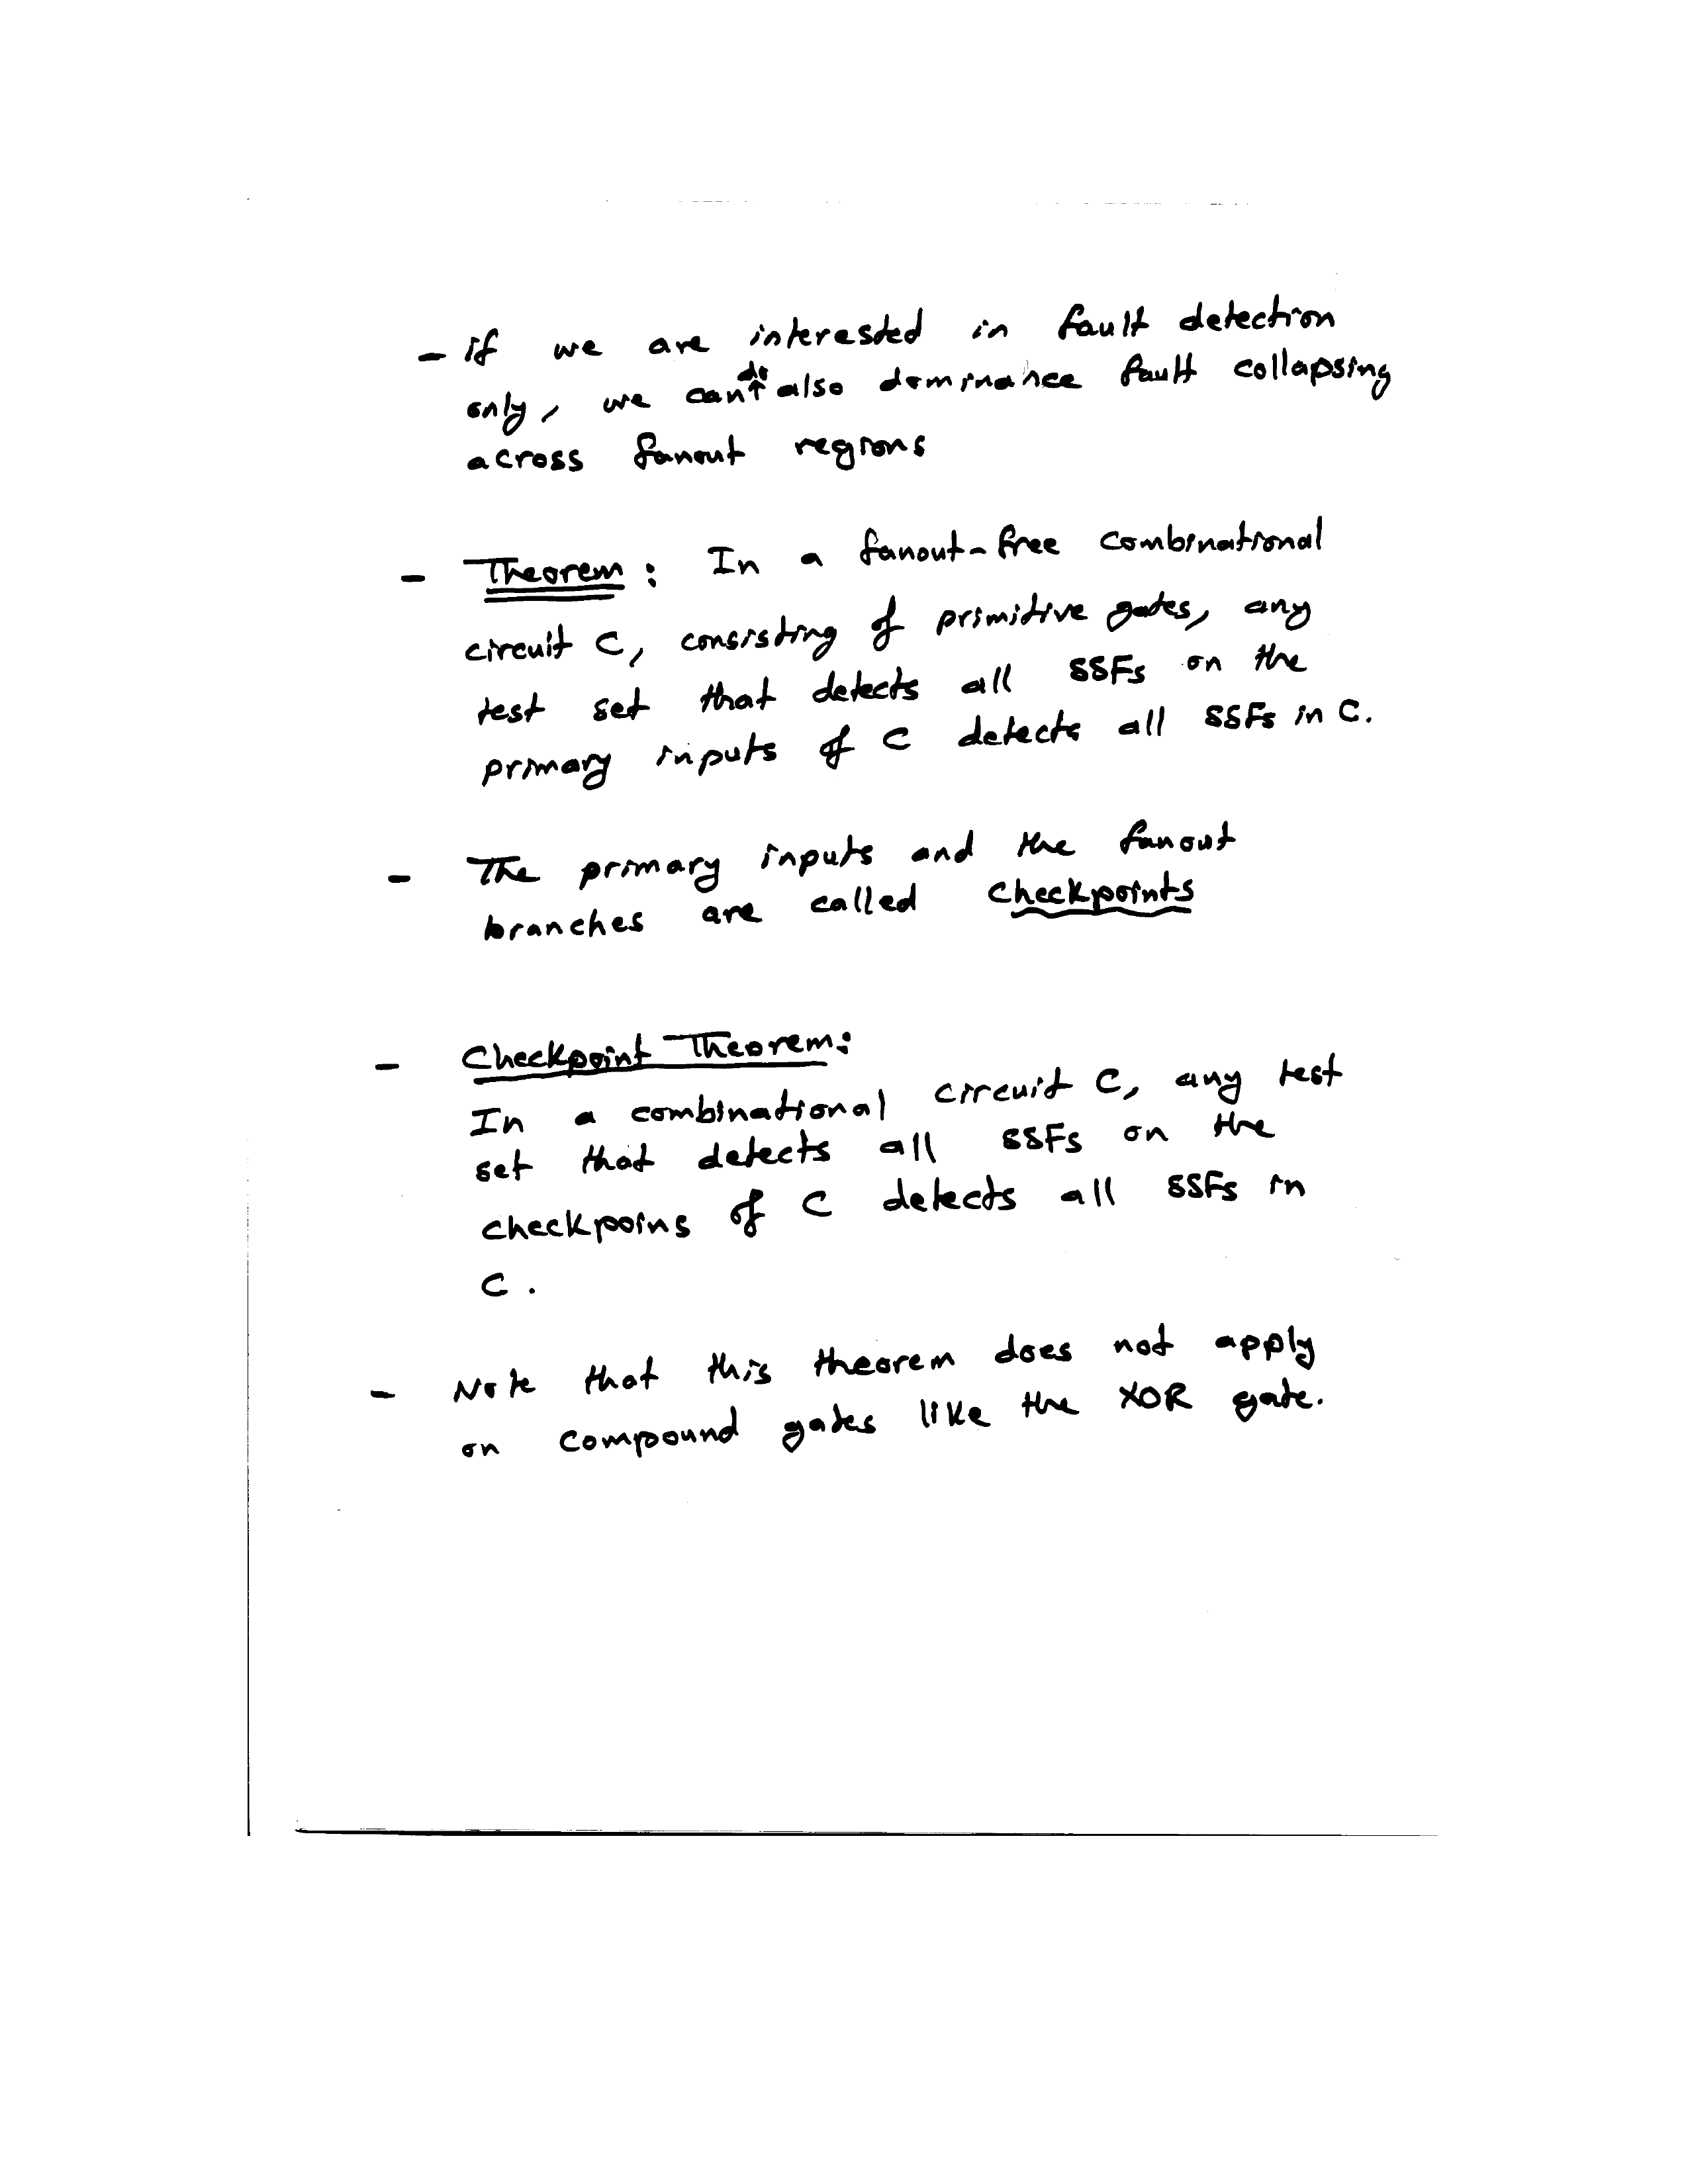 - if we are interested in fault detection
only, we can do also dominance fault collapsing
across fanout regions
- Theorem: In a fanout-free combinational
circuit C, consisting of primitive gates, any
test set that detects all SSFs on the
primary inputs of C detects all SSFs in C.
- The primary inputs and the fanout
branches are called checkpoints
- Checkpoint Theorem:
In a combinational circuit C, any test
set that detects all SSFs on the
checkpoins of C detects all SSFs in
C.
- Note that this theorem does not apply
on compound gates like the XOR gate.